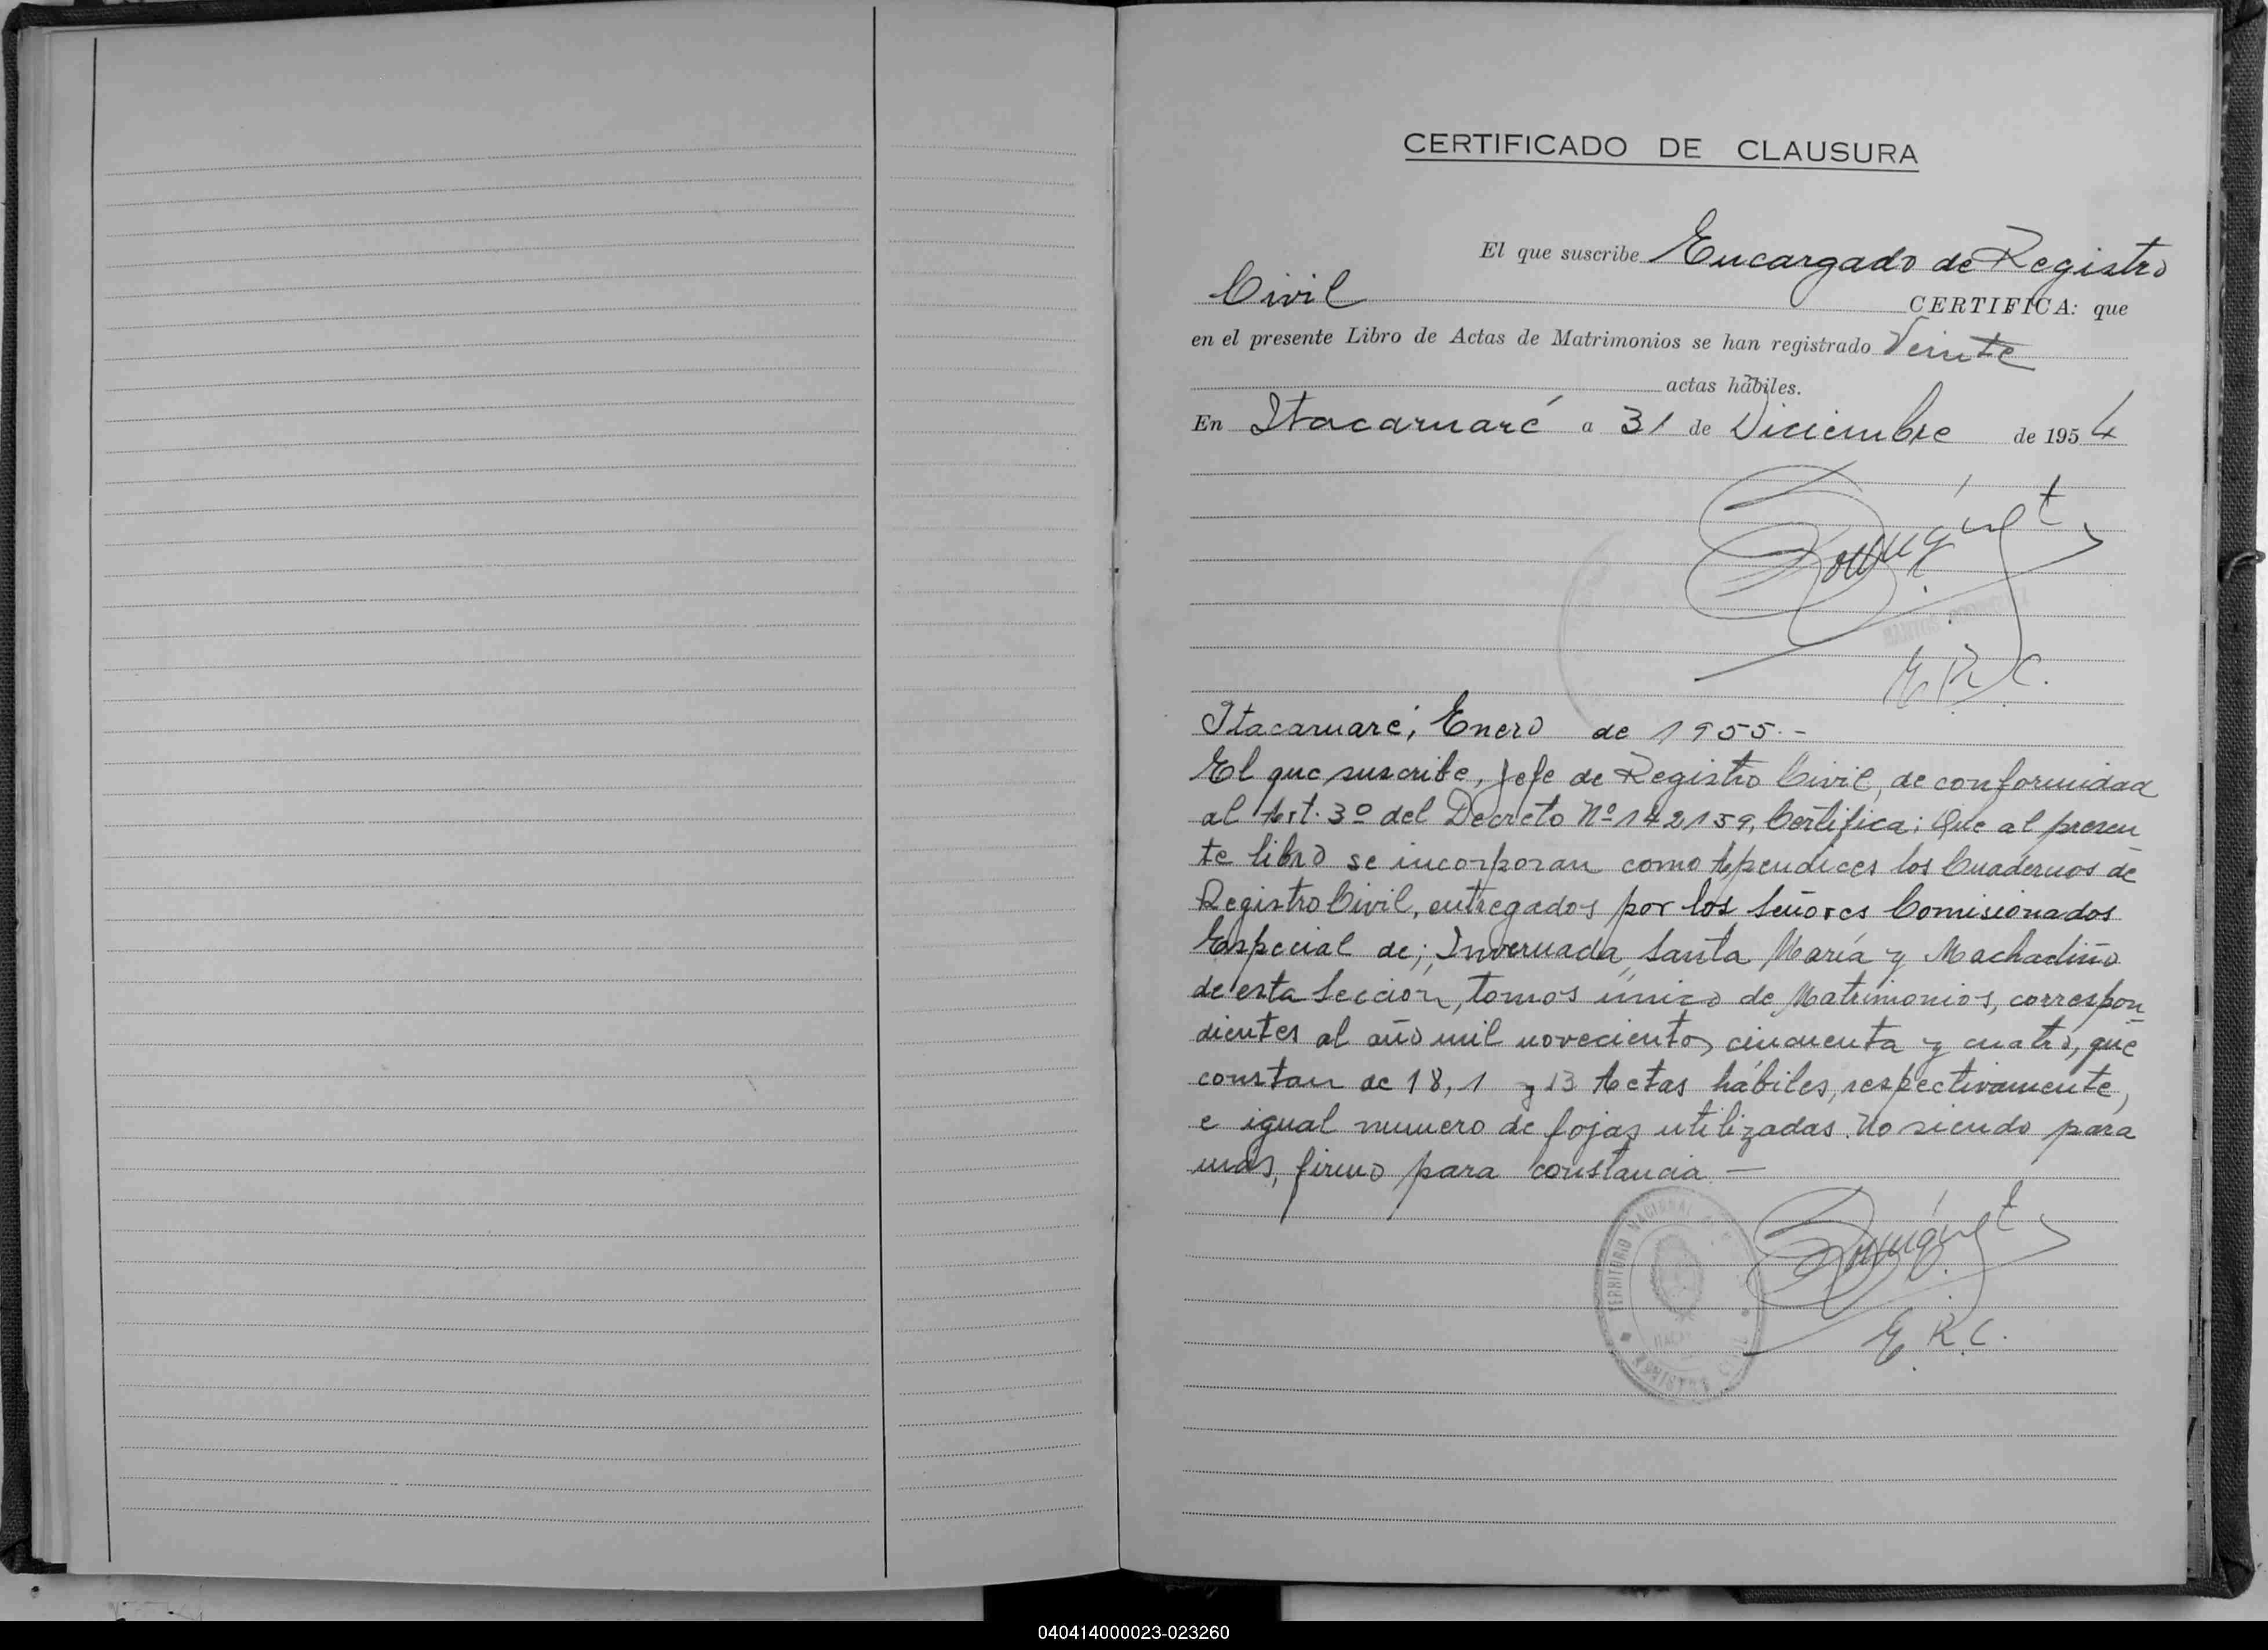 CERTIFICADO DE CLAUSURA
El que suscribe Encargado de Registro
Civil CERTIFICA: que
en el presente Libro de Actas de Matrimonios se han registrado Veinte
actas hábiles.
En Itacaruaré a 31 de Diciembre de 1954
E.R.C.
Itacaruaré, Enero de 1955.-
El que suscribe, Jefe de Registro Civil, de conformidad
al Art. 3º del Decreto Nº 142159, Certifica; Que al presen
te libro se incorporan como Apendices los Cuadernos de
Registro Civil, entregados por los Señores Comisionados
Especial de; Invernada, Santa María y Machadiño
de esta Sección, tomos único de Matrimonios, correspon
dientes al año mil novecientos cincuenta y cuatro, que
constan de 18, 1 y 13 Actas hábiles, respectivamente,
e igual numero de fojas utilizadas. No siendo para
mas, firmo para constancia —
TERRITORIO NACIONAL
REGISTRO CIVIL
E.R.C.
040414000023-023260